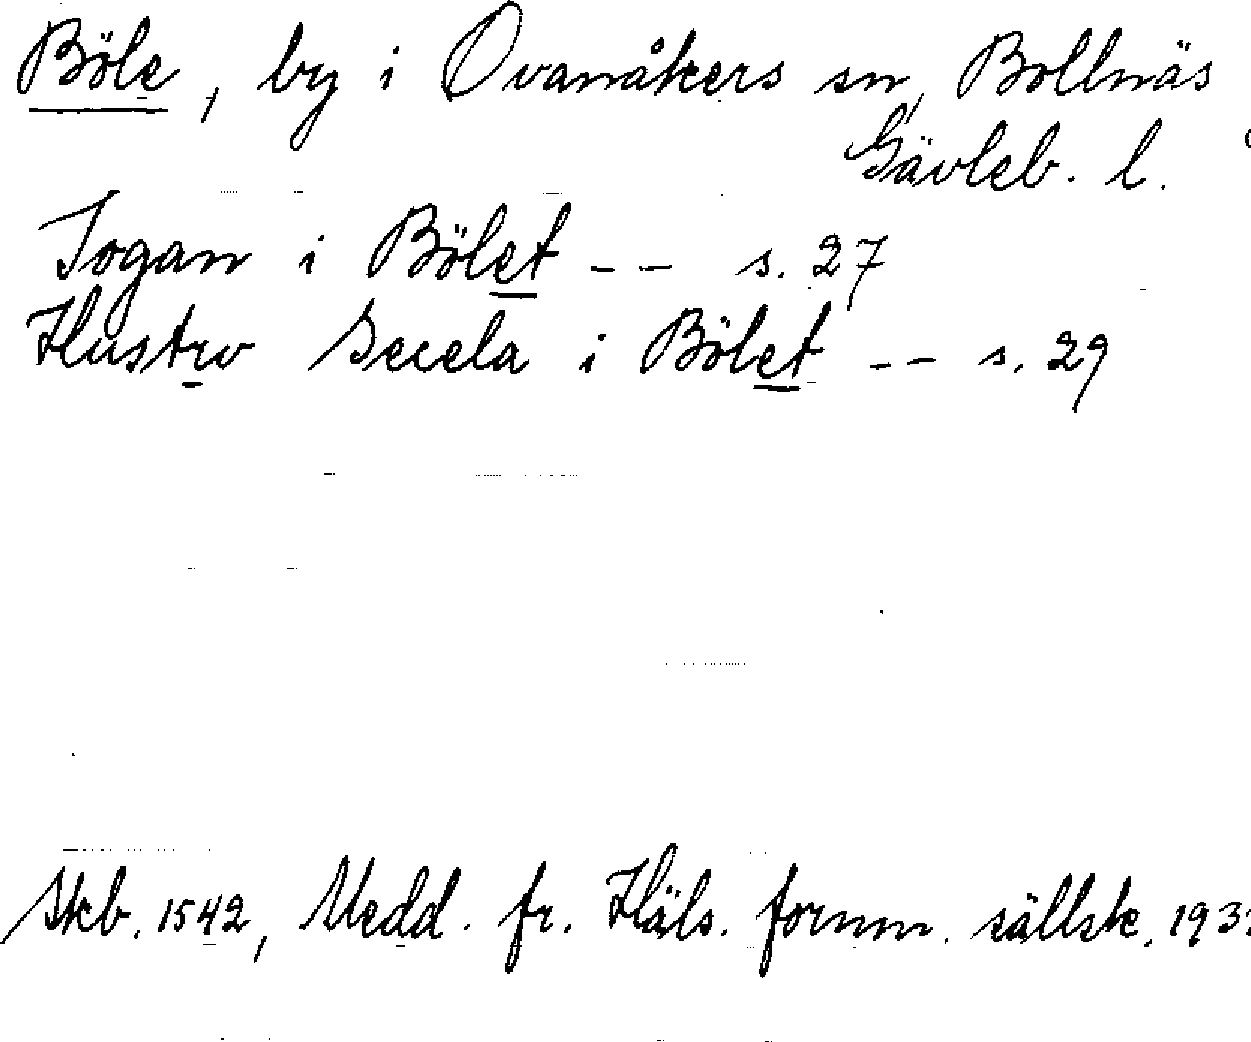 Böle, by i Ovanåkers sn, Bollnäs
Gävleb. l.
Jogan i Bölet -- s. 27
Hustrv Secela i Bölet -- s. 29
Skb. 1542, Medd. fr. Häls. fornm. sällsk. 193